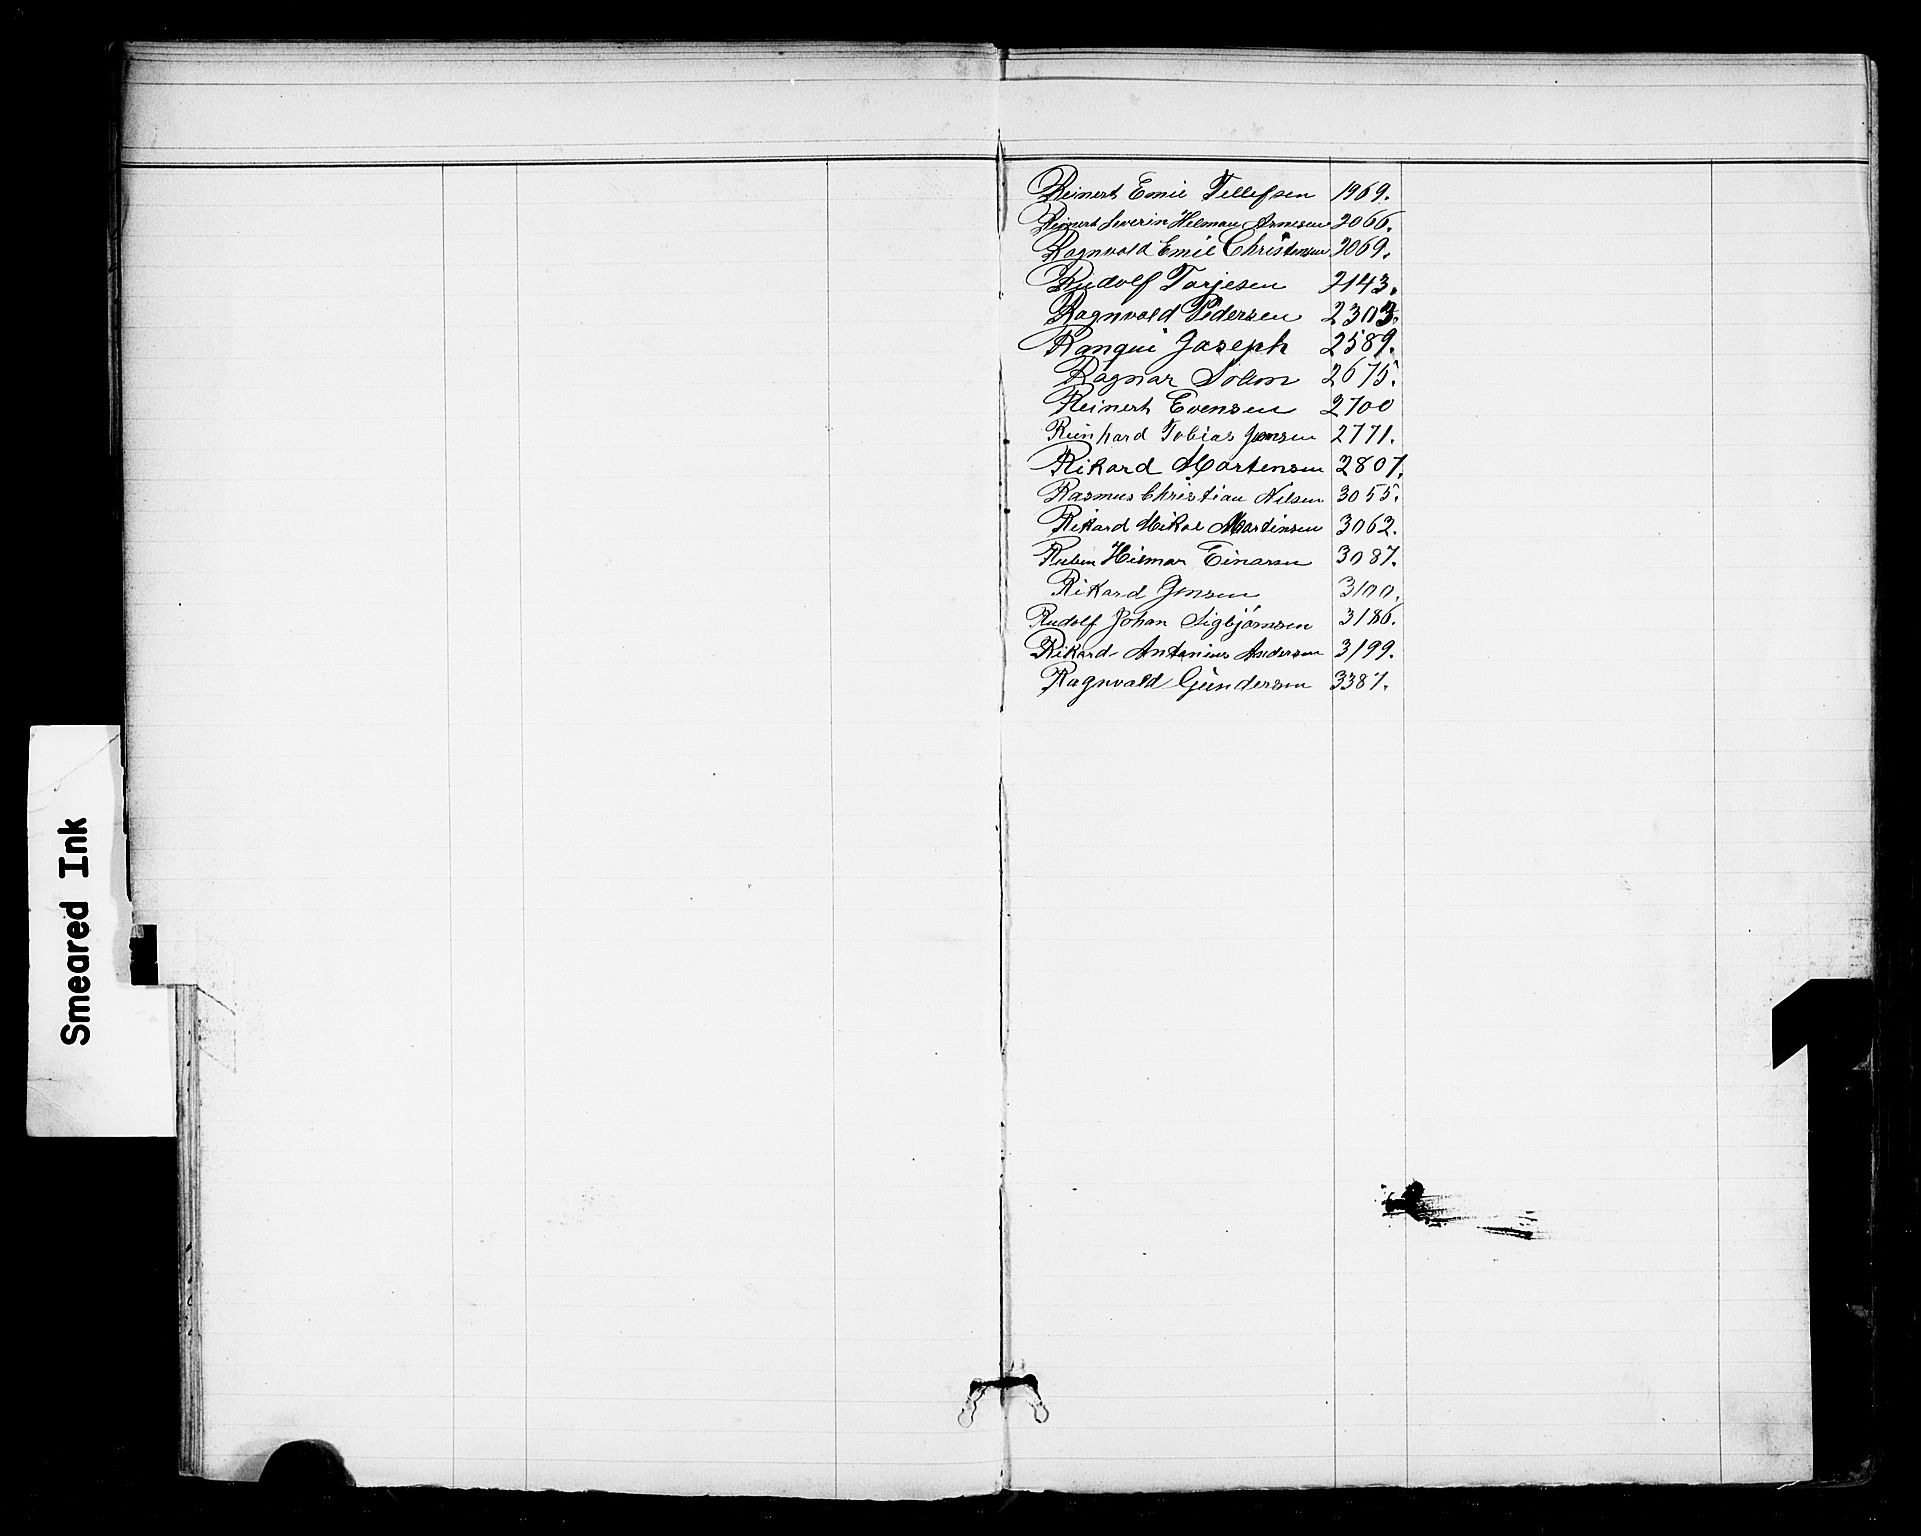 Reinert Emil Tellefsen 1969.
Reinert Severin Helmau Arnesen 2066.
Ragnvald Emil Christensen 2069.
Rudolf Tarjesen 2143.
Ragnvald Pedersen 2303.
Rangui Joseph 2589.
Ragnar Solem 2675.
Reinert Evensen 2700
Reinhard Tobias Jensen 2771.
Rikard Mortensen 2807.
Rasmus Christian Nilsen 3055.
Rikard Mikal Martinsen 3062.
Ruben Hilmar Einarsen 3087.
Rikard Jensen 3100.
Rudolf Johan Sigbjørnsen 3186.
Rikard Antonius Andersen 3199.
Ragnvald Gundersen 3387.
Smeared Ink